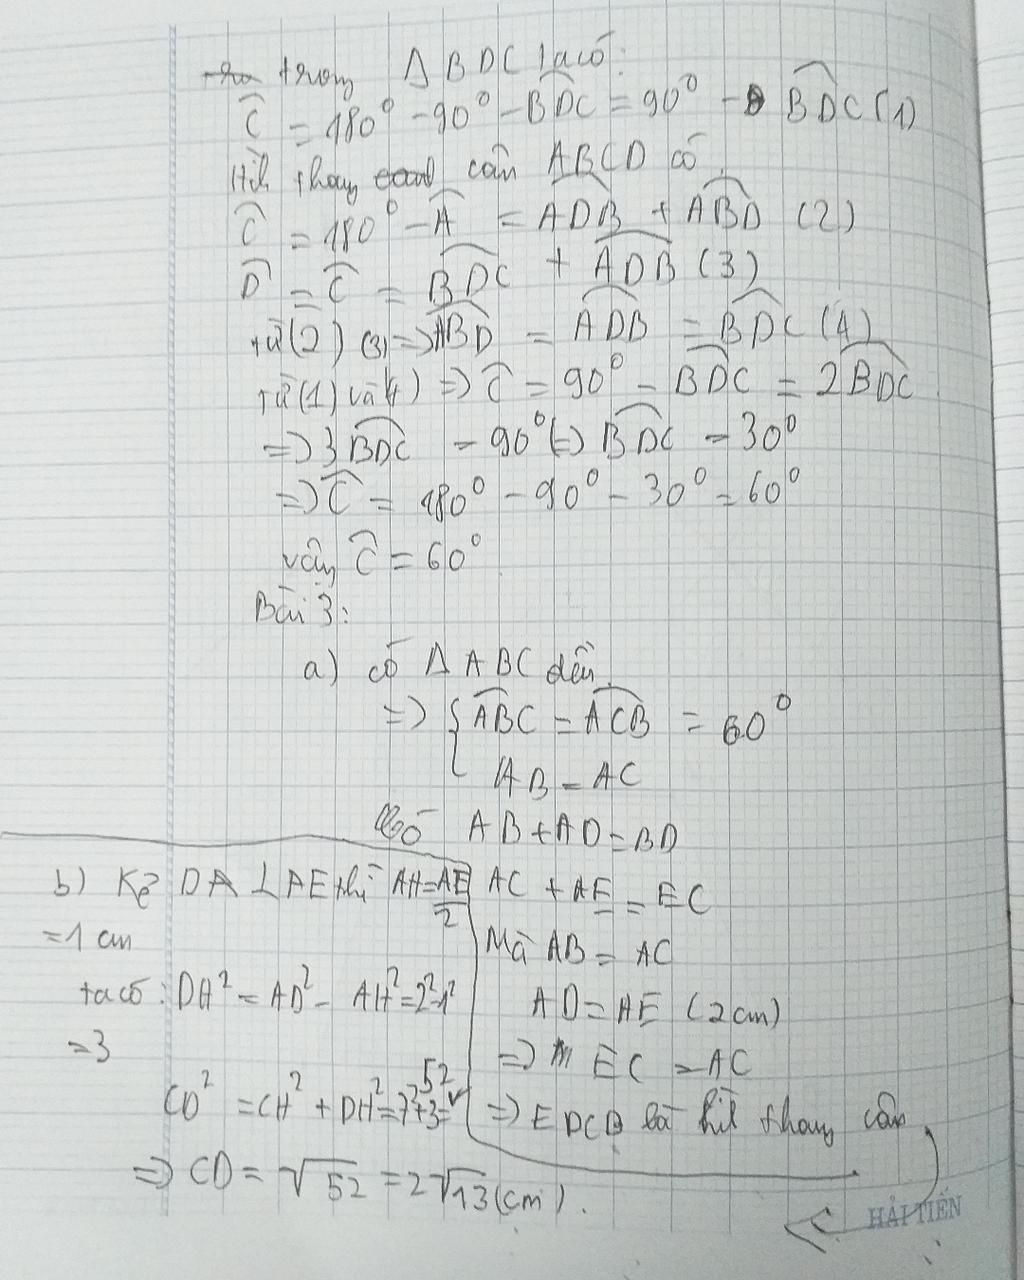 trong Δ BDC ta có:
Ĉ = 180° - 90° - BDC = 90° - BDC (1)
Hih thang cân ABCD có
Ĉ = 180° - Â = ADB + ABD (2)
D̂ = Ĉ = BDC + ADB (3)
từ (2) (3) => ABD = ADB = BDC (4)
từ (1) và (4) => Ĉ = 90° - BDC = 2BDC
=> 3 BDC = 90° (=) BDC = 30°
=> Ĉ = 180° - 90° - 30° = 60°
vậy Ĉ = 60°
Bài 3:
a) có Δ ABC đều
=> { ABC = ACB = 60°
AB = AC
có AB + AD = BD
AC + AE = EC
Mà AB = AC
AD = AE (2cm)
=> EC = AC
=> EDCB là hih thang cân
b) Kẻ DA ⊥ AE thì AH = AE/2
= 1 cm
ta có: DH² = AD² - AH² = 2² - 1²
= 3
CD² = CH² + DH² = 7² + 3 = 52
=> CD = √52 = 2√13 (cm).
HẢI TIẾN